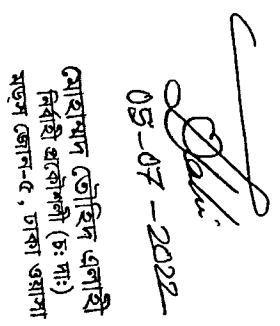 05-07-2022
মোহাম্মদ তৌহিদ এলাহী
নির্বাহী প্রকৌশলী (চঃ দাঃ)
মডস জোন-৫, ঢাকা ওয়াসা